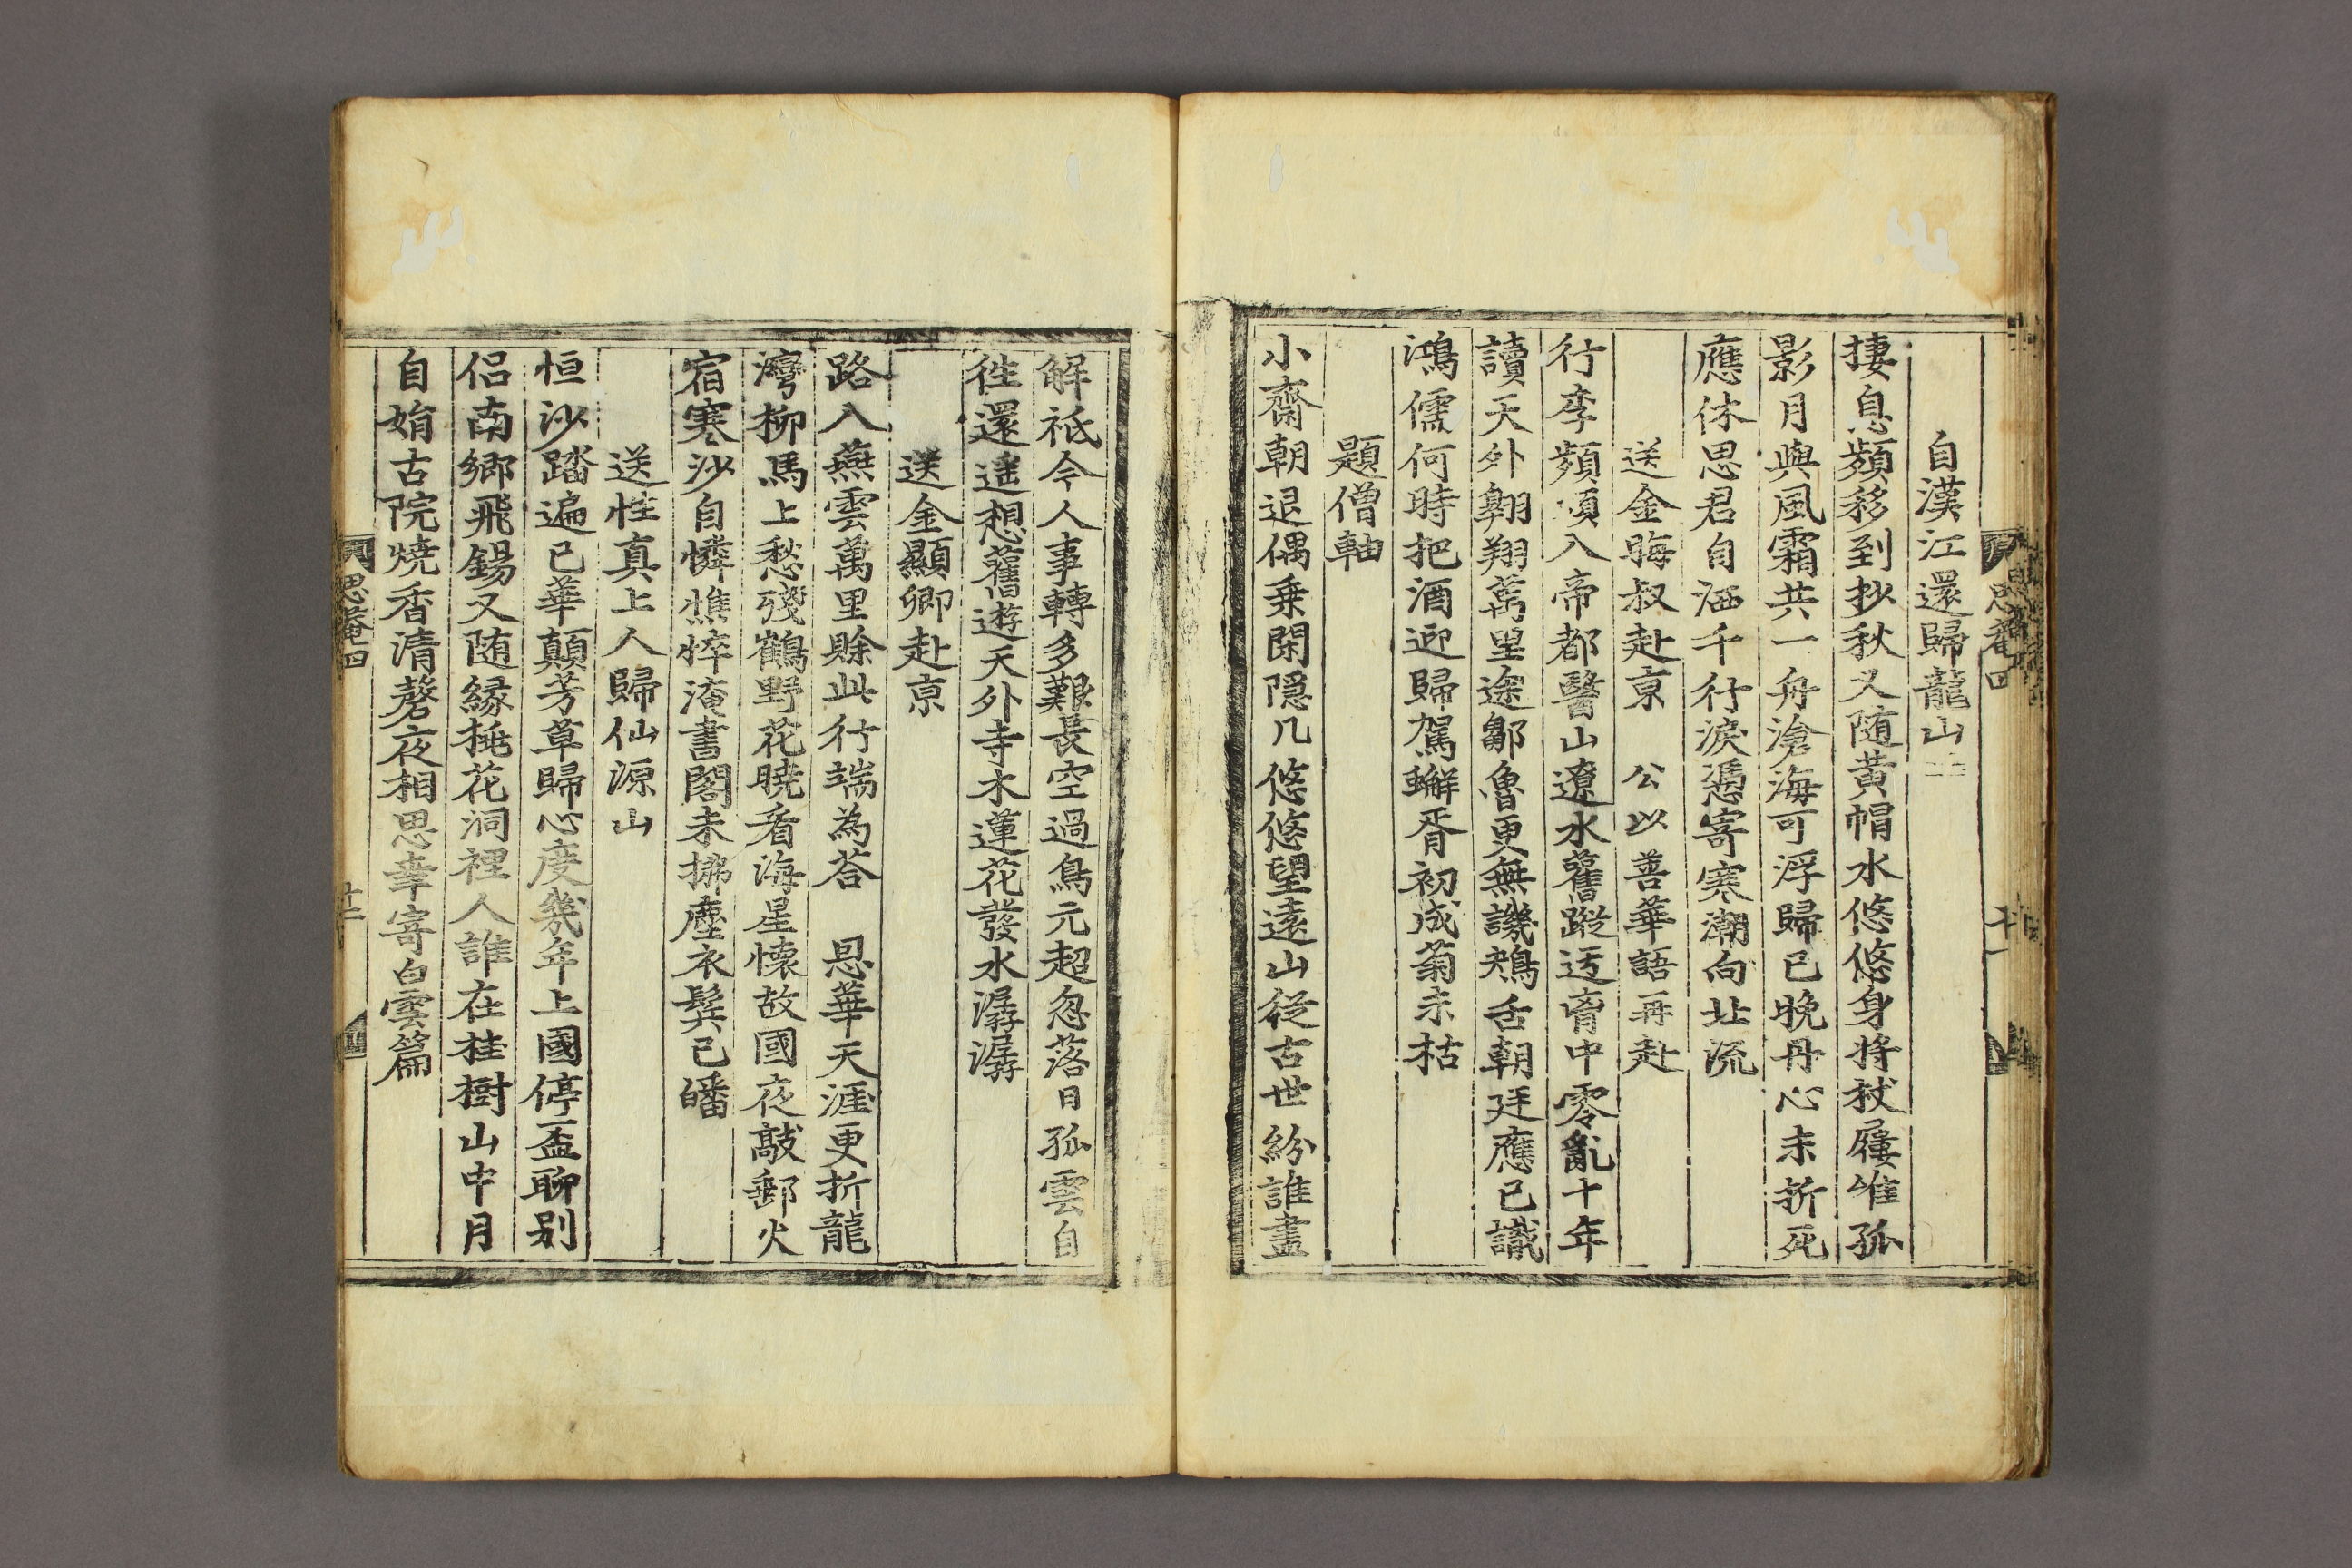 自漢江還歸龍山
捿息頻移到抄秋又随黄帽水悠悠身將杖屨唯孤
影月與風霜共一舟滄海可浮歸已晚丹心未折死
應休思君自洒千行淚憑寄寒潮向北流
送金晦叔赴京　公以善華語再赴
行李頻煩入帝都醫山遼水舊蹤迃胷中零亂十年
讀天外翺翔萬里途鄒魯更無譏鴂舌朝廷應已識
鴻儒何時把酒迎歸駕蠏胥初成菊未枯
題僧軸
小齋朝退偶乗閑隠几悠悠望遠山従古世紛誰盡
解祗今人事轉多艱長空過鳥元超忽落日孤雲自
徃還遥想舊遊天外寺木蓮花發水潺潺
送金顯卿赴京
路入燕雲萬里賖此行端為荅　恩華天涯更折龍
灣柳馬上愁殘鶴野花曉看海星懷故國夜敲郵火
宿寒沙自憐憔悴淹書閣未拂塵衣鬂已皤
送性真上人歸仙源山
恒沙踏遍已華顛芳草歸心度幾年上國停盃聊别
侣南鄉飛錫又随縁桃花洞裡人誰在桂樹山中月
自娟古院燒香清磬夜相思幸寄白雲篇
思菴四
十一
思菴四
十二